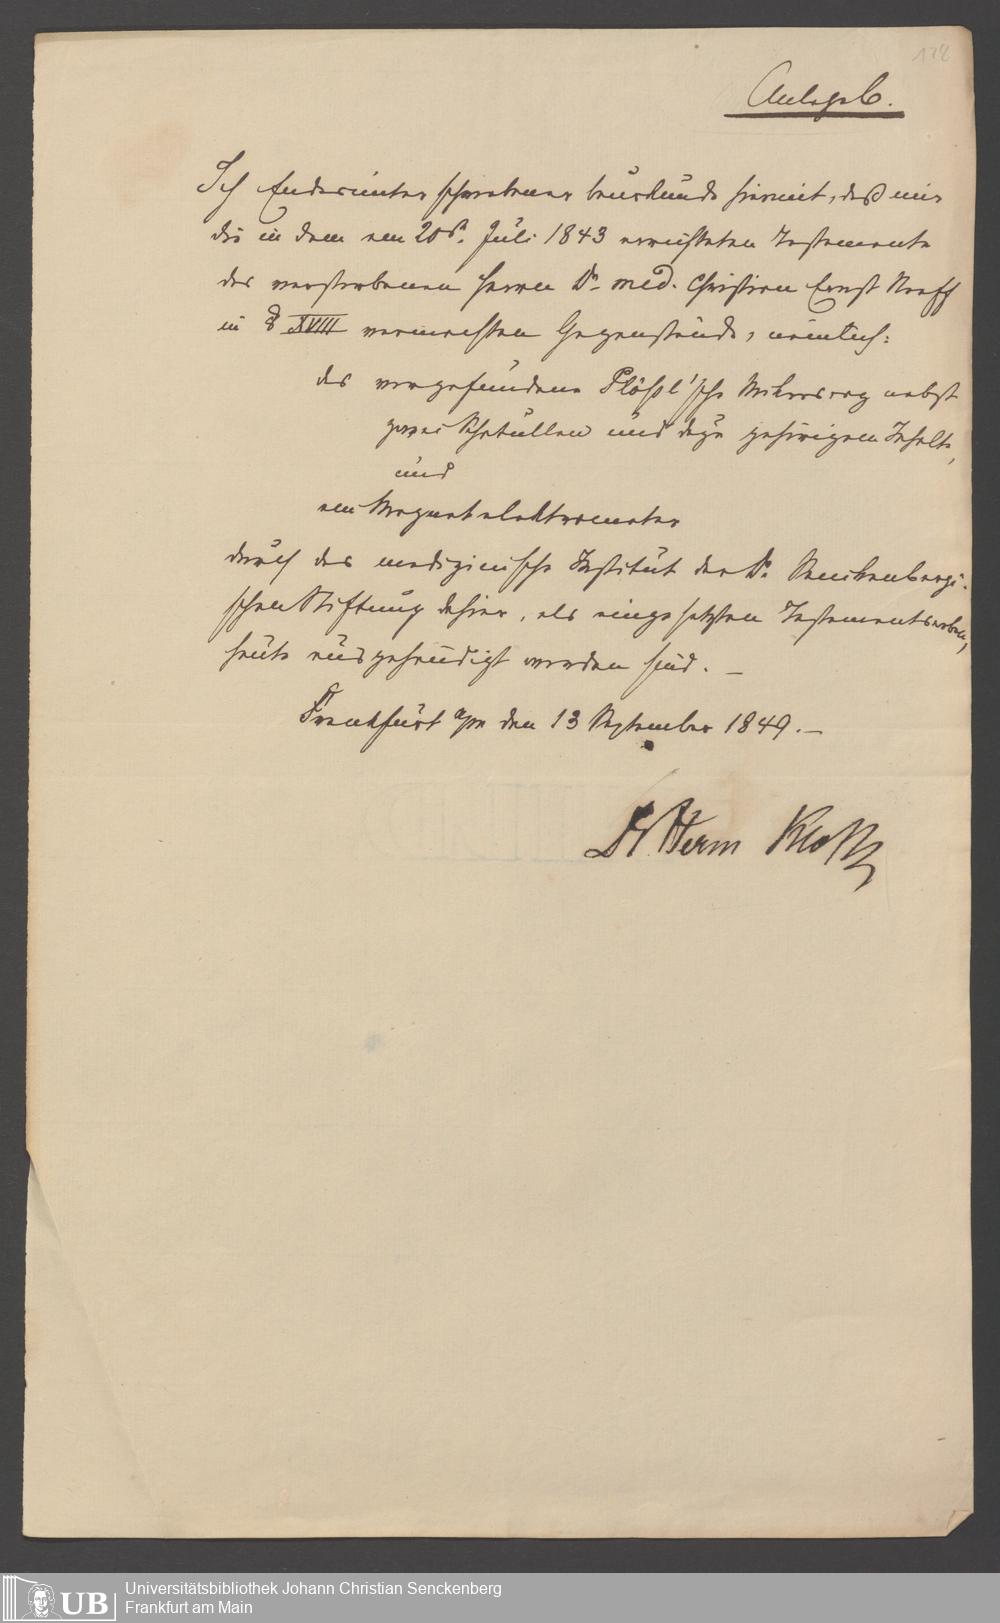 178
Anlage C.
Ich Endesunterschriebener beurkunde hiermit, daß mir
die in dem am 20t. Juli 1843 errichteten Testamente
des verstorbenen Herrn Dr. med. Christian Ernst Neeff
in § XVIII vermachten Gegenstände, nämlich:
das vorgefundene Plößl'sche Mikroscop nebst
zwei Schatullen und dazu gehörigem Inhalte,
und
ein Magnetelektrometer
durch das medizinische Institut der Dr. Senckenbergi-
schen Stiftung dahier, als eingesetzten Testamentserben,
heute ausgehändigt worden sind. —
Frankfurt a/m den 13 September 1849. —
Dr Herm Kloß
UB
Universitätsbibliothek Johann Christian Senckenberg
Frankfurt am Main